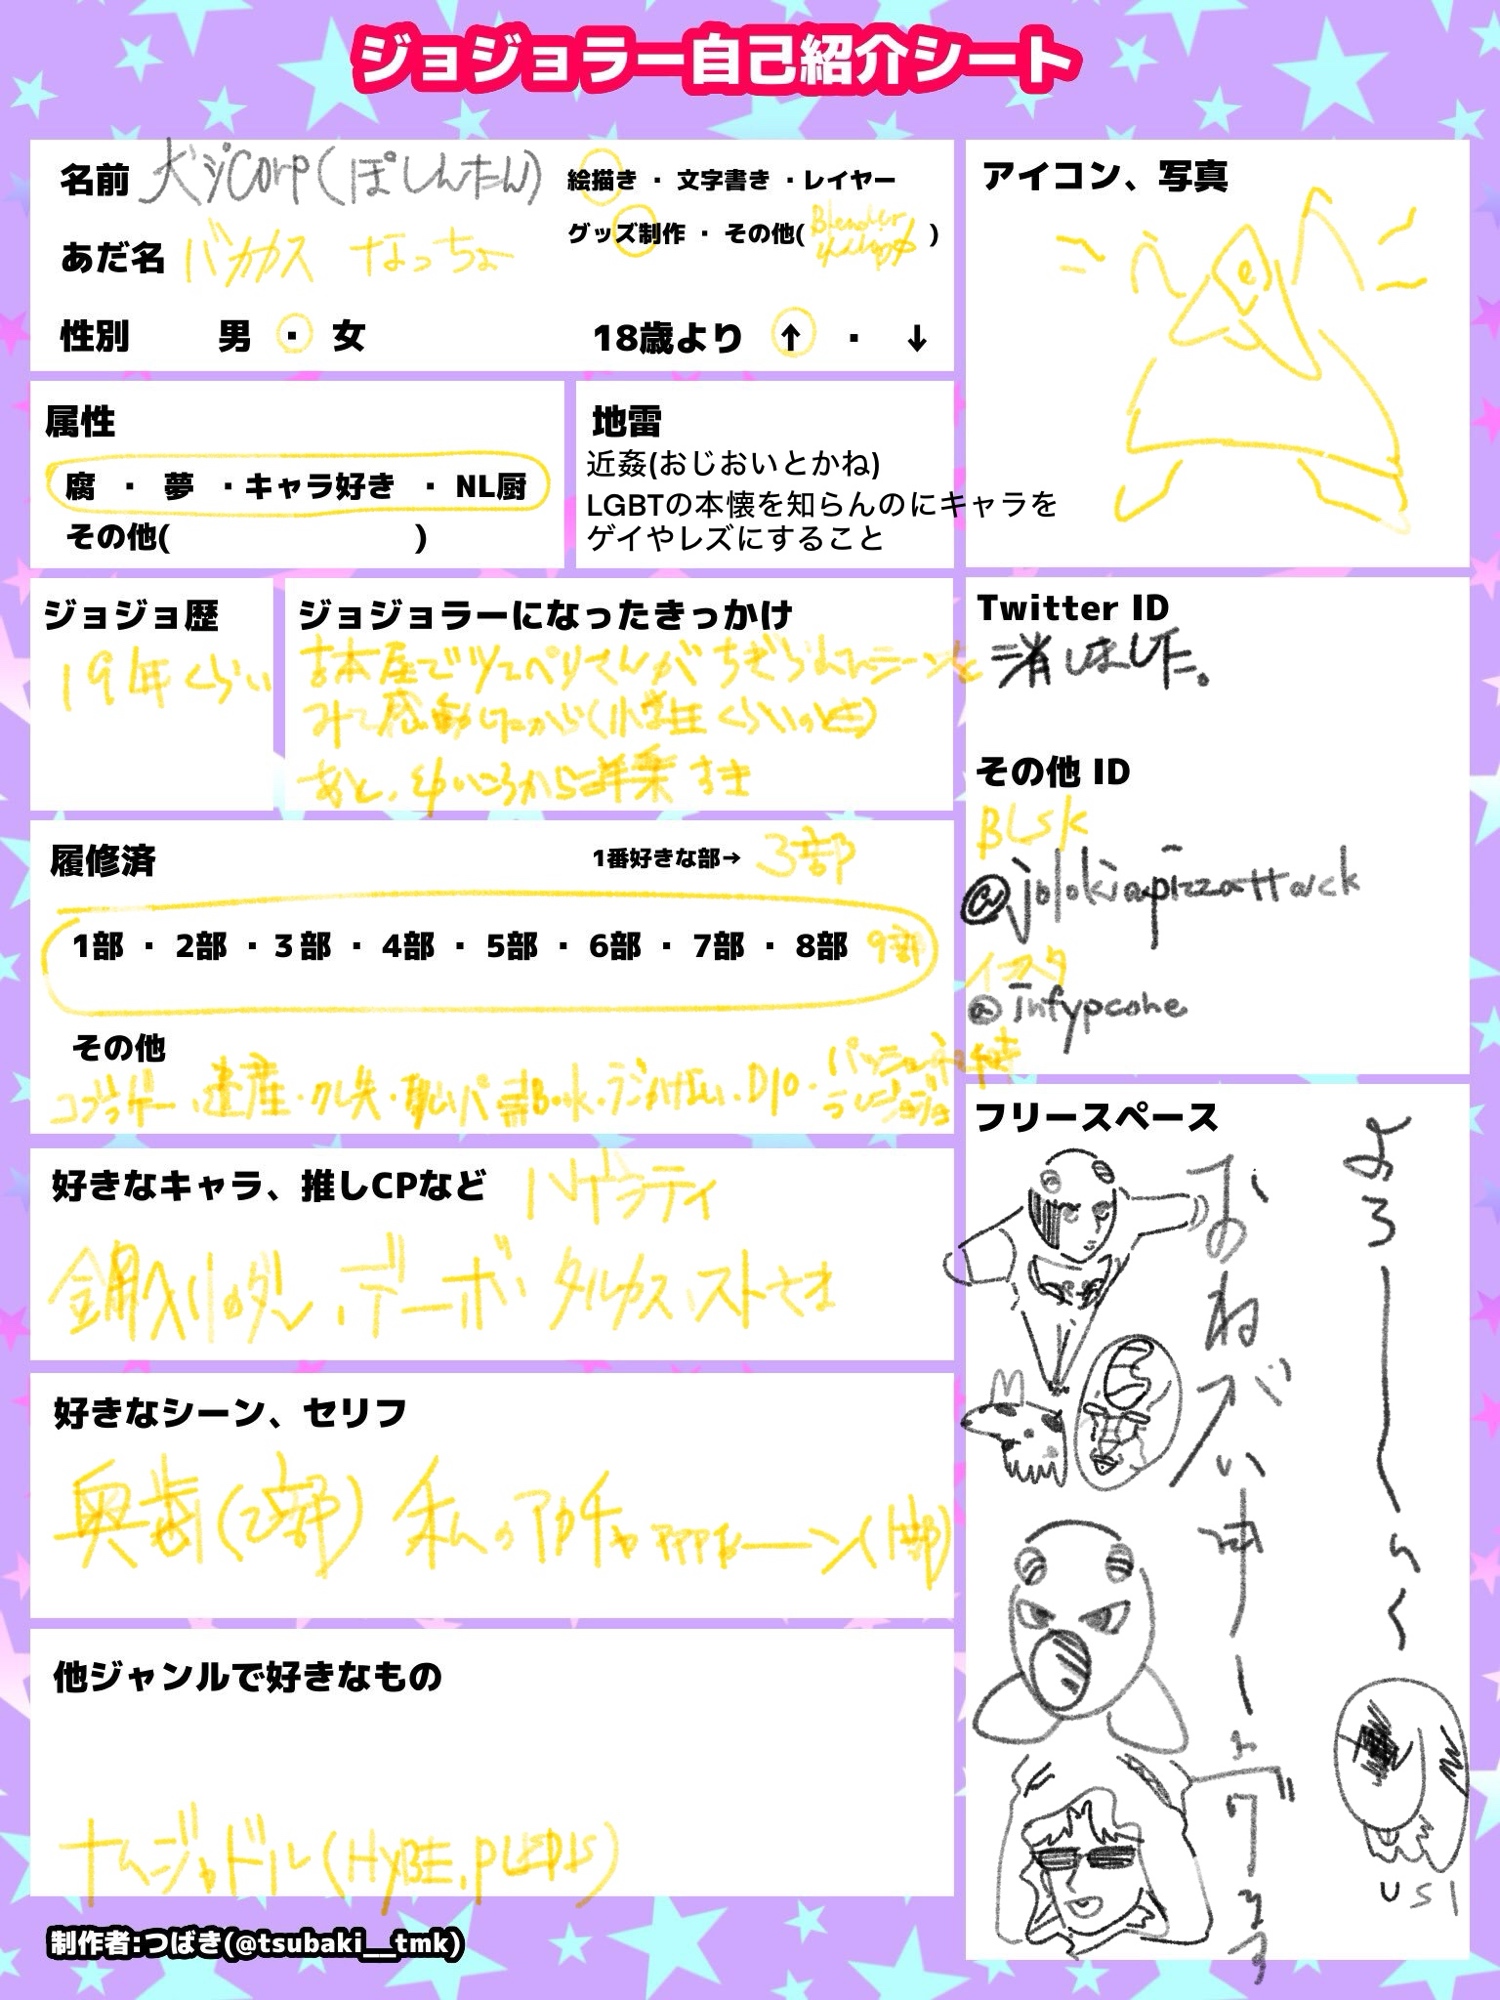 ジョジョラー自己紹介シート
名前 犬ジCorp(ぽしんたん)
絵描き ・ 文字書き ・レイヤー
グッズ制作 ・ その他(Blender )
あだ名 バカカス なっちょ
性別 男 ・ 女
18歳より ↑ ・ ↓
アイコン、写真
属性
腐 ・ 夢 ・キャラ好き ・ NL厨
その他( )
地雷
近姦(おじおいとかね)
LGBTの本懐を知らんのにキャラを
ゲイやレズにすること
ジョジョ歴
19年くらい
ジョジョラーになったきっかけ
古本屋でツェペリさんがちぎられてるシーンを
みて感動したから(小学生くらいのとき)
あと、幼いころから洋楽すき
Twitter ID
消しました。
その他 ID
BLsk
@jolokiapizzattack
インスタ
@infypcohe
履修済 1番好きな部→ 3部
1部 ・ 2部 ・3部 ・ 4部 ・ 5部 ・ 6部 ・ 7部 ・ 8部 9部
その他
遺産・クレ失・恥パ・Book・DIO・
好きなキャラ、推しCPなど
鋼入りのダン、デーボ、タルカス、ストさま
好きなシーン、セリフ
奥歯(2部) 私のアカチャァァァな――ン(1部)
他ジャンルで好きなもの
ナムジュドル(HYBE, PLEDIS)
フリースペース
よろーーしく
おねがいナーーす
USI
制作者:つばき(@tsubaki__tmk)